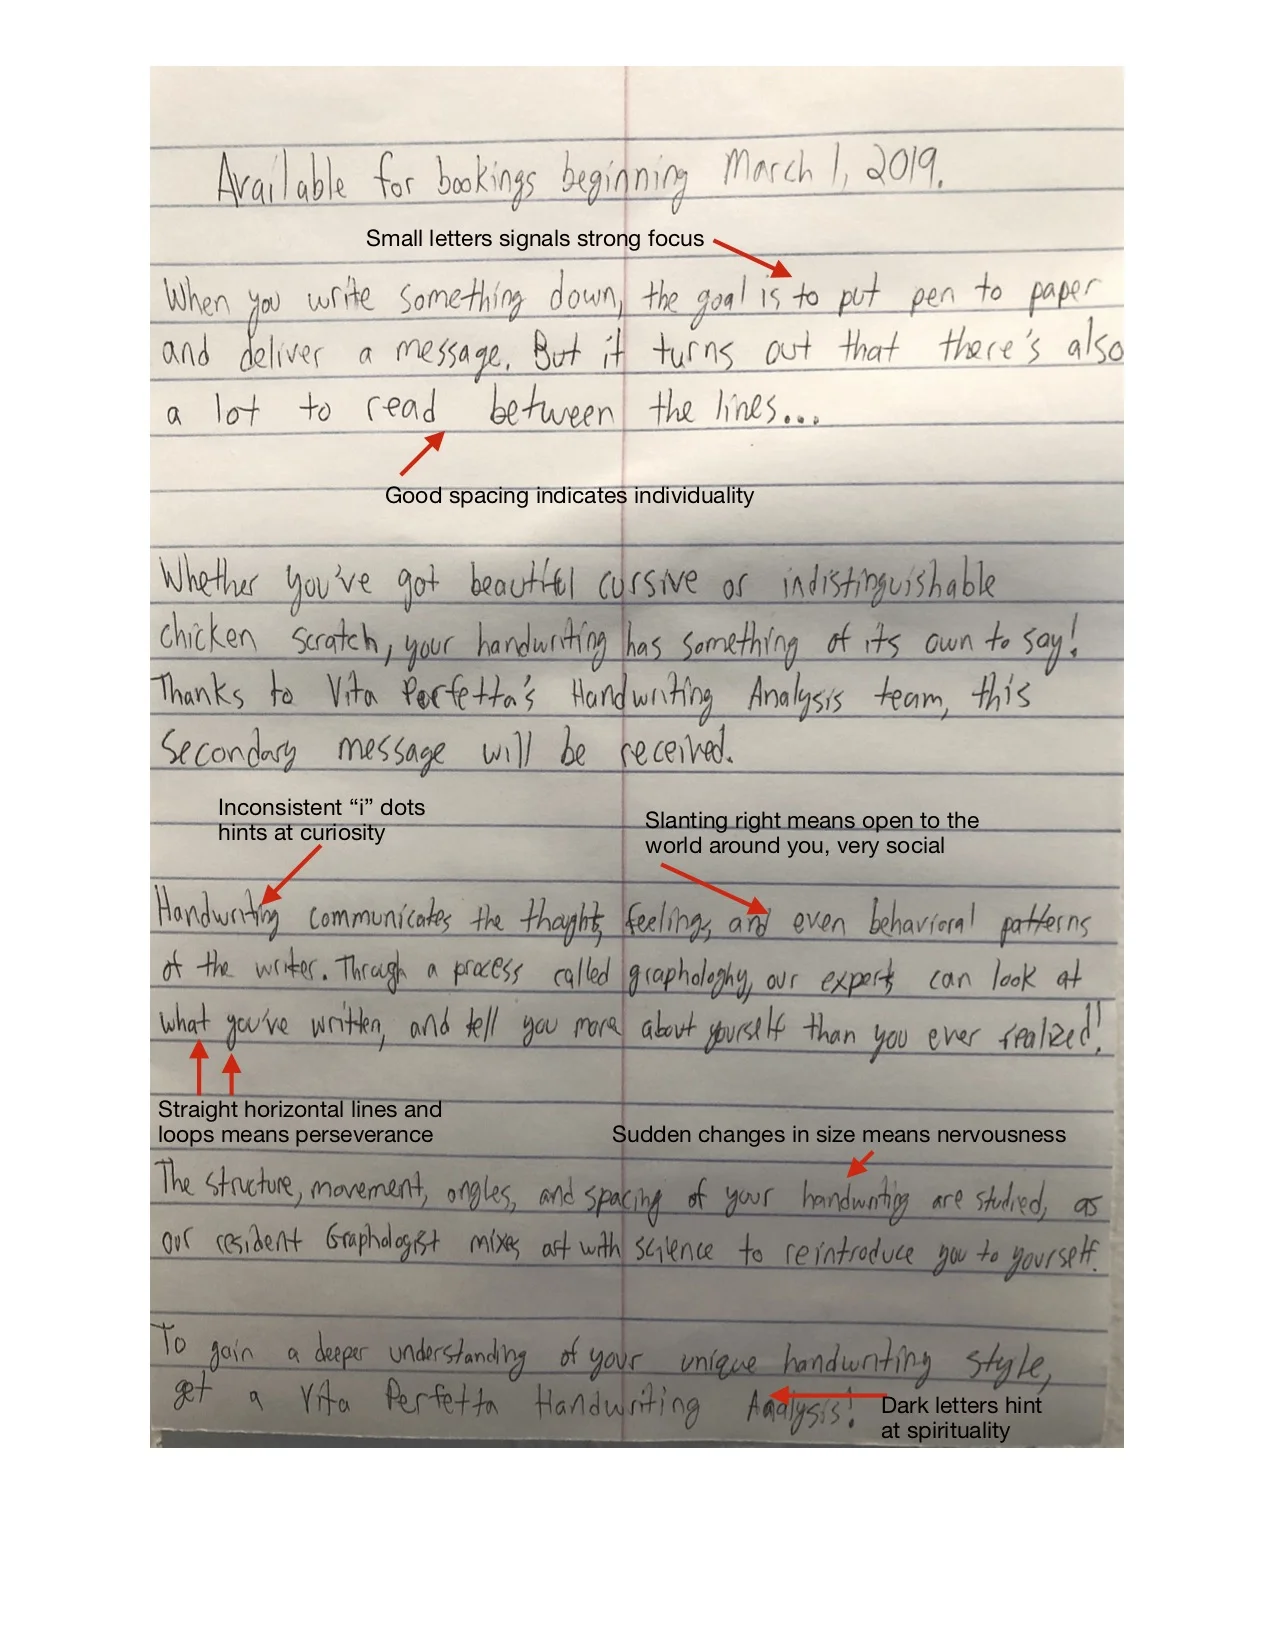 Available for bookings beginning March 1, 2019.
Small letters signals strong focus
When you write something down, the goal is to put pen to paper
and deliver a message. But it turns out that there's also
a lot to read between the lines...
Good spacing indicates individuality
Whether you've got beautiful cursive or indistinguishable
chicken scratch, your handwriting has something of its own to say!
Thanks to Vita Perfetta's Handwriting Analysis team, this
secondary message will be received.
Inconsistent “i” dots
hints at curiosity
Slanting right means open to the
world around you, very social
Handwriting communicates the thoughts, feelings, and even behavioral patterns
of the writer. Through a process called graphologhy, our experts can look at
what you've written, and tell you more about yourself than you ever realized!
Straight horizontal lines and
loops means perseverance
Sudden changes in size means nervousness
The structure, movement, angles, and spacing of your handwriting are studied, as
our resident Graphologist mixes art with science to reintroduce you to yourself.
To gain a deeper understanding of your unique handwriting style,
get a Vita Perfetta Handwriting Analysis!
Dark letters hint
at spirituality